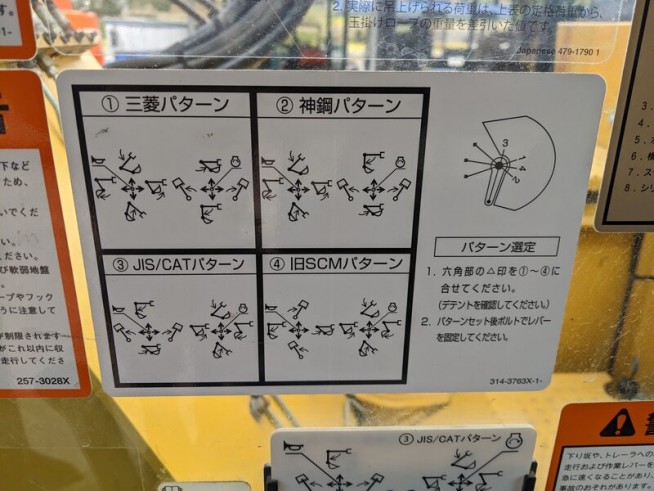 2. 実際に吊上げられる荷重は、上表の定格荷重から、
玉掛けロープの重量を差引いた値です。
Japanese 479-1790 1
① 三菱パターン
② 神鋼パターン
③ JIS/CATパターン
④ 旧SCMパターン
3
1
4
2
パターン選定
1. 六角部の△印を①〜④に
合せてください。
(デテントを確認してください。)
2. パターンセット後ボルトでレバー
を固定してください。
314-3763X-1-
下など
ため、
いでくだ
い。
ださい。
び軟弱地盤
。
ープやフック
ように注意して
が制限されます
がこれ以内に収
走行してくださ
257-3028X
3.
4.
5.
6.
7. ス
8. シリ
③ JIS/CATパターン
下り坂や、トレーラへの
走行および作業レバーを
急に速くなることがあり、
事故のおそれがあります。